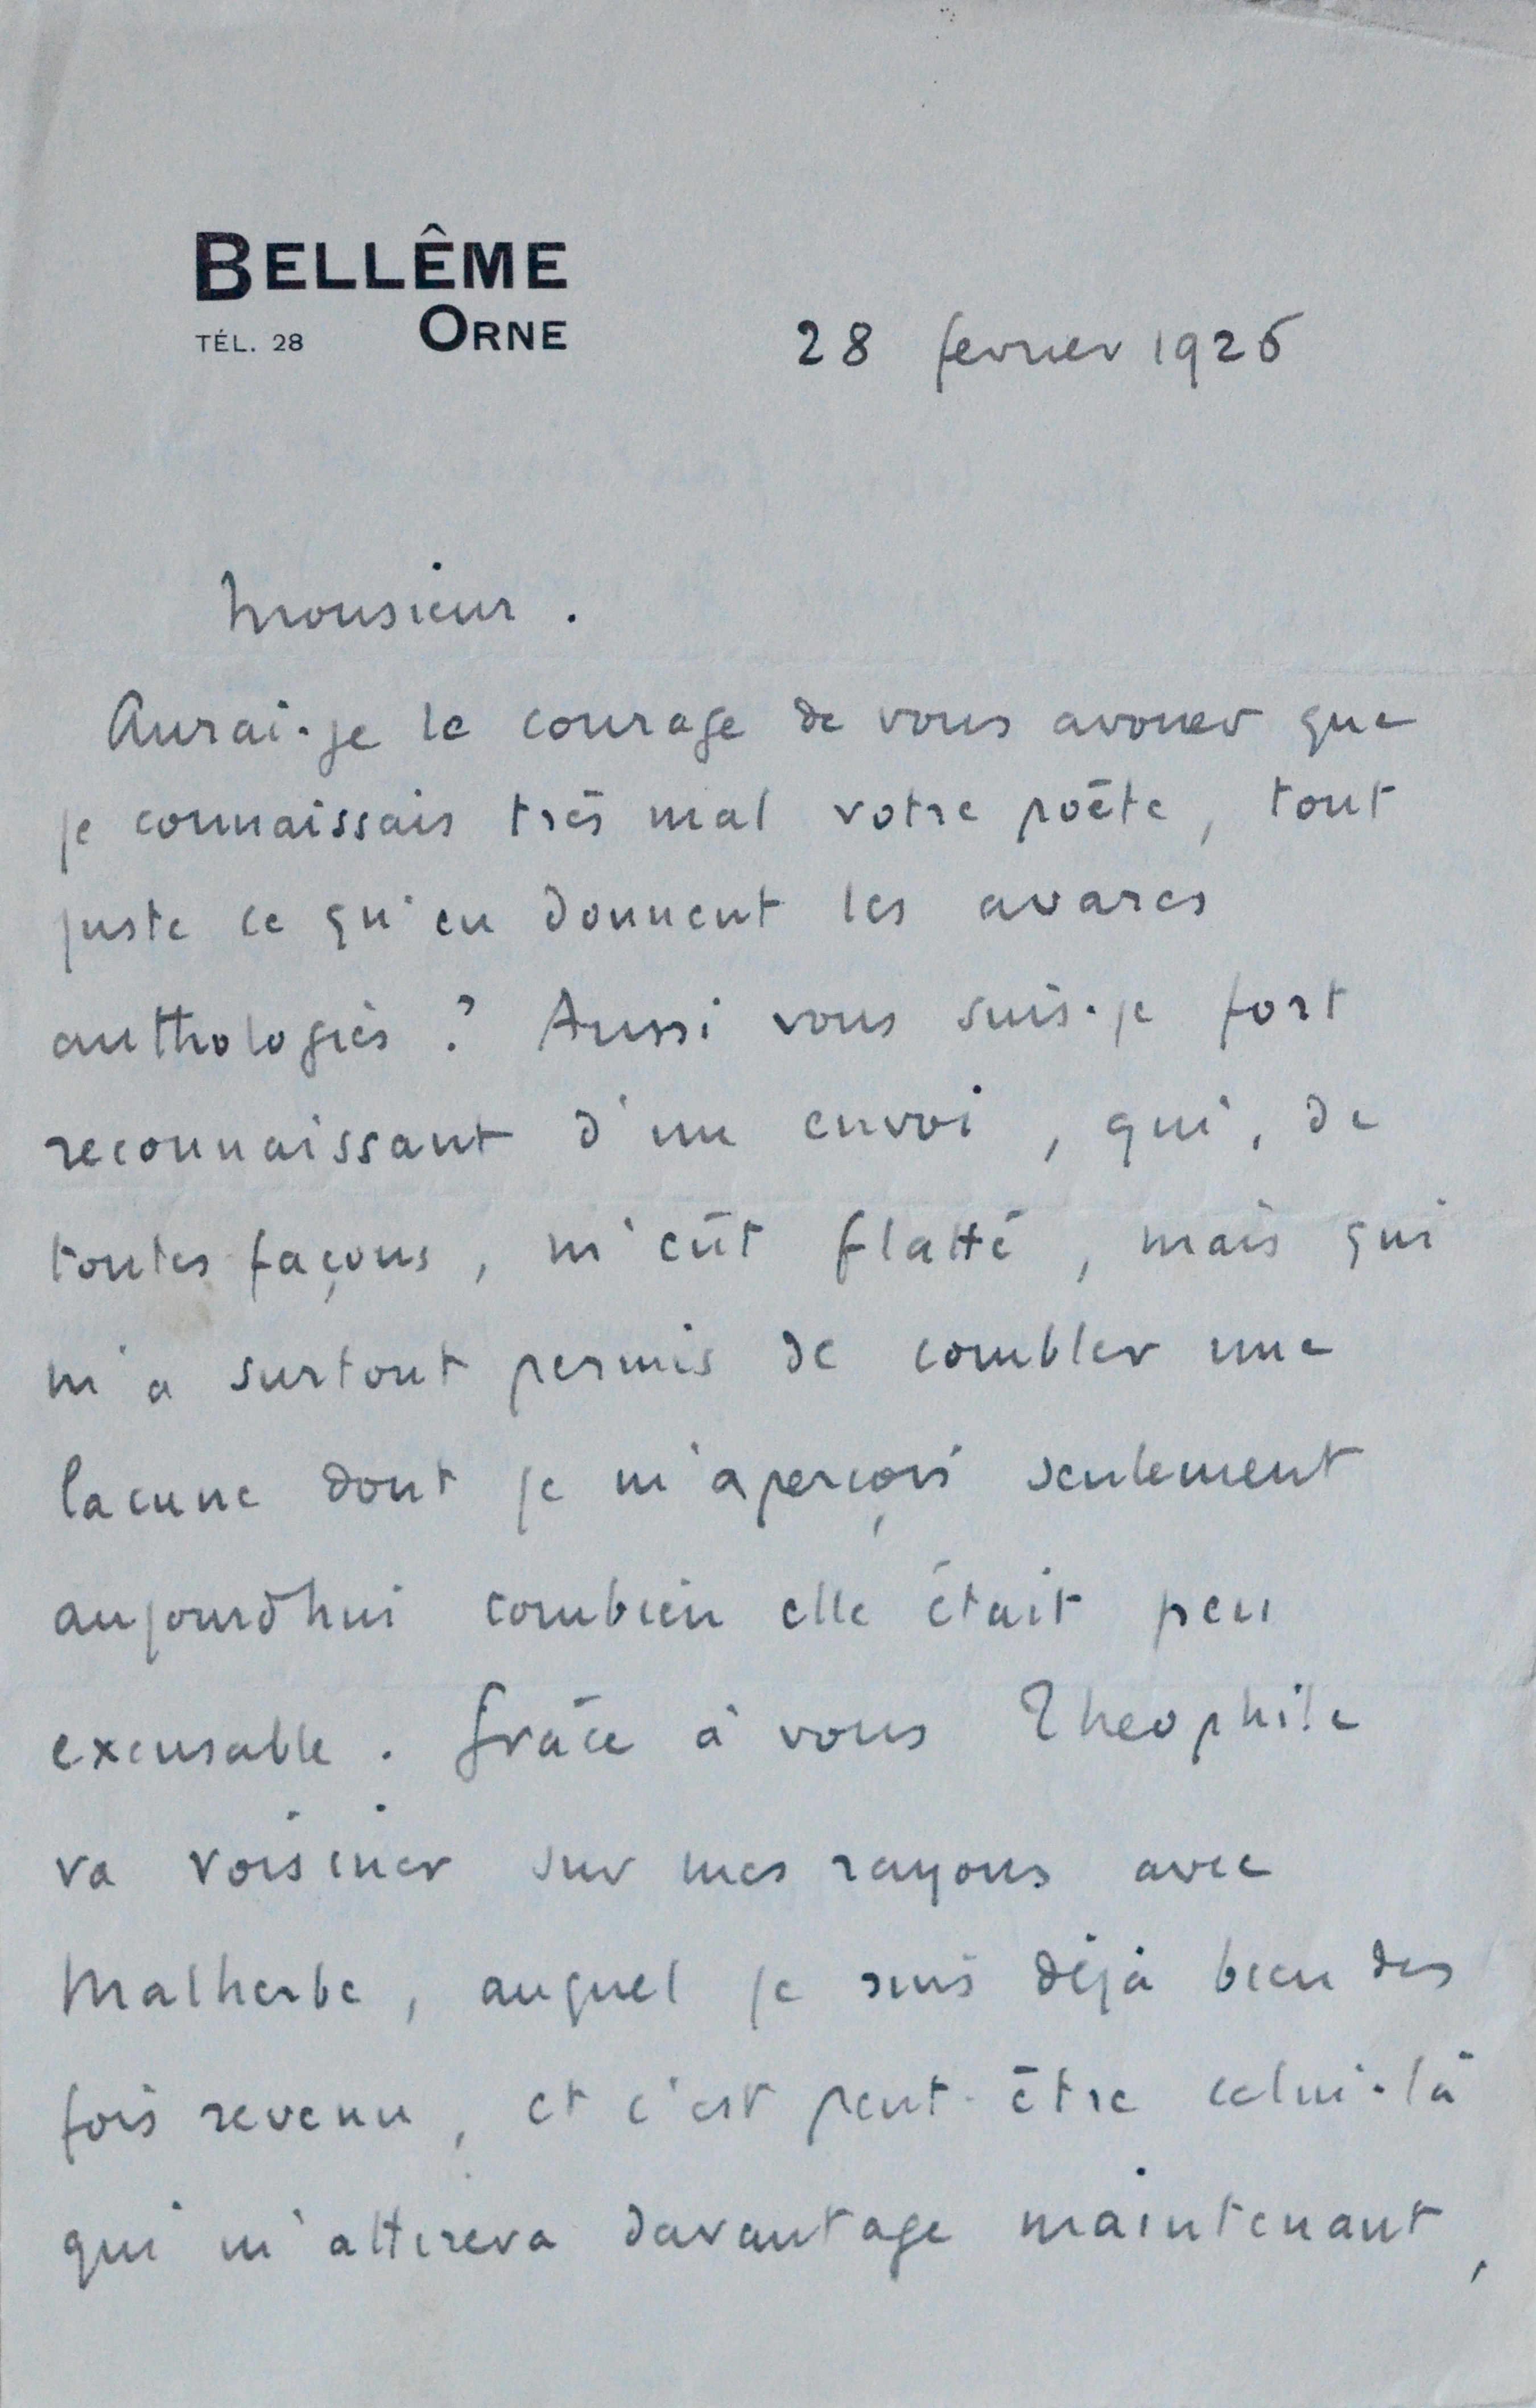 BELLÊME
TÉL. 28 ORNE
28 fevrier 1926
Monsieur.
Aurai-je le courage de vous avouer que
je connaissais très mal votre poète, tout
juste ce qu'en donnent les avares
anthologies ? Aussi vous suis-je fort
reconnaissant d'un envoi, qui, de
toutes façons, m'eût flatté, mais qui
m'a surtout permis de combler une
lacune dont je m'aperçois seulement
aujourd'hui combien elle était peu
excusable. Grâce à vous Theophile
va voisiner sur mes rayons avec
Malherbe, auquel je suis déjà bien des
fois revenu, et c'est peut-être celui-là
qui m'attirera davantage maintenant,